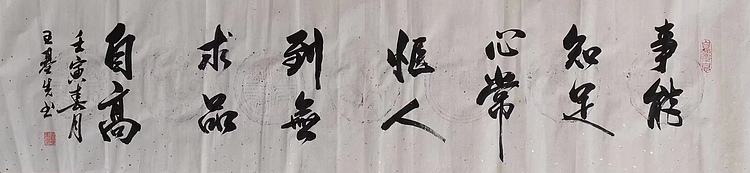 事能
知足
心常
愜人
到無
求品
自高
壬寅春月
王
书